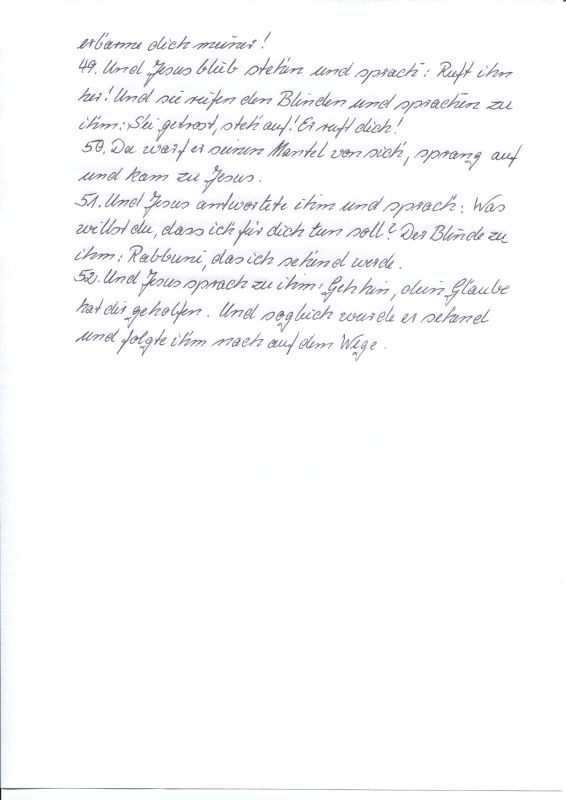 erbarme dich meiner!
49. Und Jesus blieb stehen und sprach: Ruft ihn
her! Und sie rufen den Blinden und sprachen zu
ihm: Sei getrost, steh auf! Er ruft dich!
50. Da warf er seinen Mantel von sich, sprang auf
und kam zu Jesus.
51. Und Jesus antwortete ihm und sprach: Was
willst du, dass ich für dich tun soll? Der Blinde zu
ihm: Rabbuni, das ich sehend werde.
52. Und Jesus sprach zu ihm: Geh hin, dein Glaube
hat dir geholfen. Und sogleich wurde er sehend
und folgte ihm nach auf dem Wege.